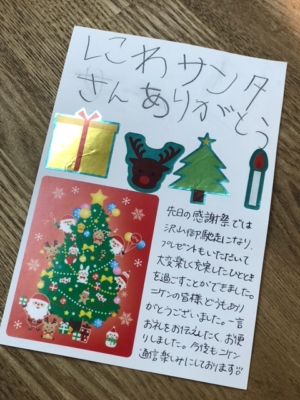 しこわサンタ
さんありがとう
先日の感謝祭では
沢山御馳走になり、
プレゼントもいただいて
大変楽しく充実したひととき
を過ごすことができました。
ニケンの皆様どうもあり
がとうございました。一言
お礼をお伝えしたく、お便
りしました。今後もニケン
通信楽しみにしております